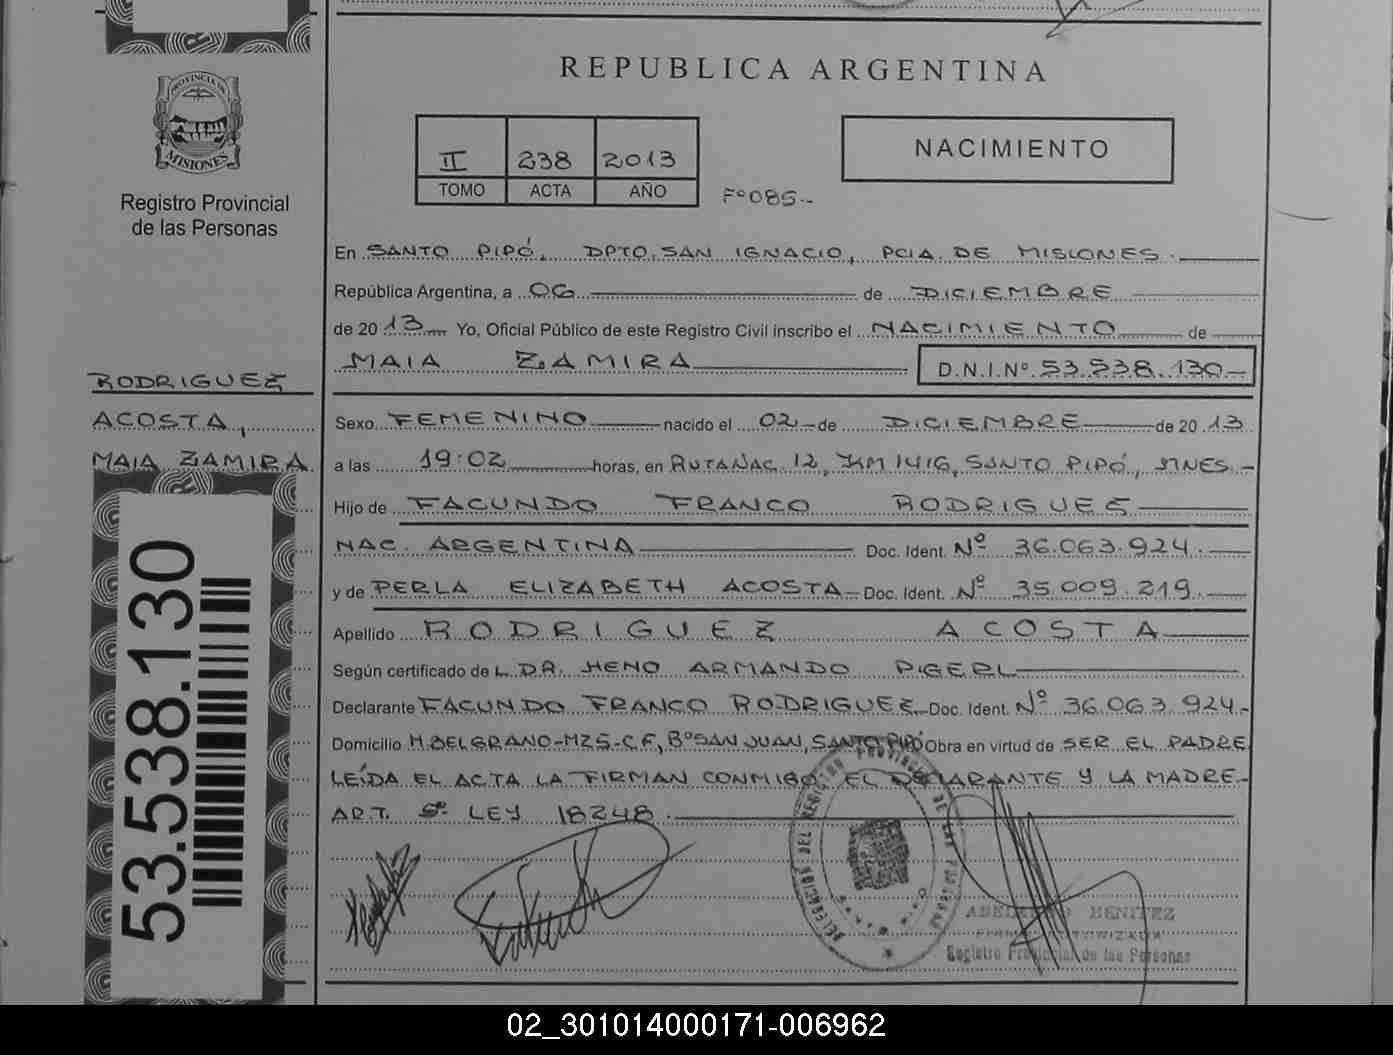 REPUBLICA ARGENTINA
PROVINCIA DE
MISIONES
Registro Provincial
de las Personas
II 238 2013
TOMO ACTA AÑO
Fº 085--
NACIMIENTO
En SANTO PIPÓ, DPTO, SAN IGNACIO, PCIA DE MISIONES.
República Argentina, a 06 de DICIEMBRE
de 2013 Yo, Oficial Público de este Registro Civil inscribo el NACIMIENTO de
MAIA ZAMIRA D.N.I.Nº 53.538.130
RODRIGUEZ
ACOSTA,
MAIA ZAMIRA
Sexo FEMENINO nacido el 02 de DICIEMBRE de 2013
a las 19:02 horas, en RUTA NAC. 12, KM 1416, SANTO PIPÓ, MNES.-
Hijo de FACUNDO FRANCO RODRIGUEZ
NAC. ARGENTINA Doc. Ident. Nº 36.063.924.
y de PERLA ELIZABETH ACOSTA Doc. Ident. Nº 35.009.219.
Apellido RODRIGUEZ ACOSTA
Según certificado de L. DR. HENO ARMANDO PIGERL
Declarante FACUNDO FRANCO RODRIGUEZ Doc. Ident. Nº 36.063.924.-
Domicilio M.BELGRANO-MZ5-C.F, BºSAN JUAN, SANTO PIPÓ Obra en virtud de SER EL PADRE
LEÍDA EL ACTA LA FIRMAN CONMIGO EL DECLARANTE Y LA MADRE.-
ART. 5º LEY 18248.
53.538.130
DELEGACION DEL REGISTRO PROVINCIAL DE LAS PERSONAS
BENITEZ
Registro Provincial de las Personas
02_301014000171-006962